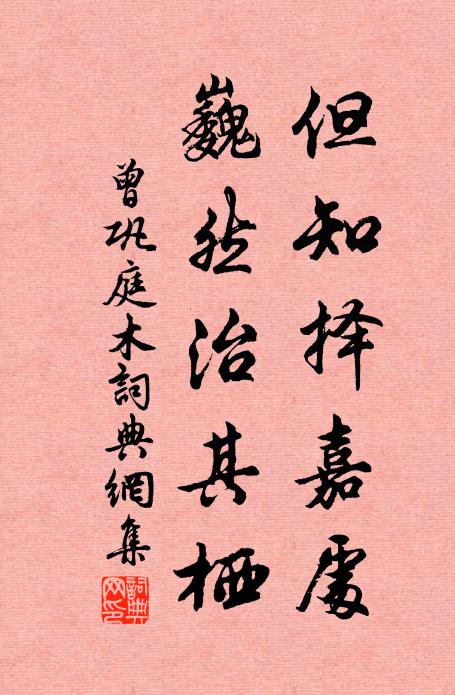 但知择嘉處
巍然治其栖
曾巩庭木詞典網集
詞典網印